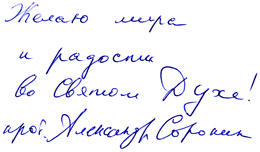 Желаю мира
и радости
во Святом Духе!
прот. Александр Сорокин